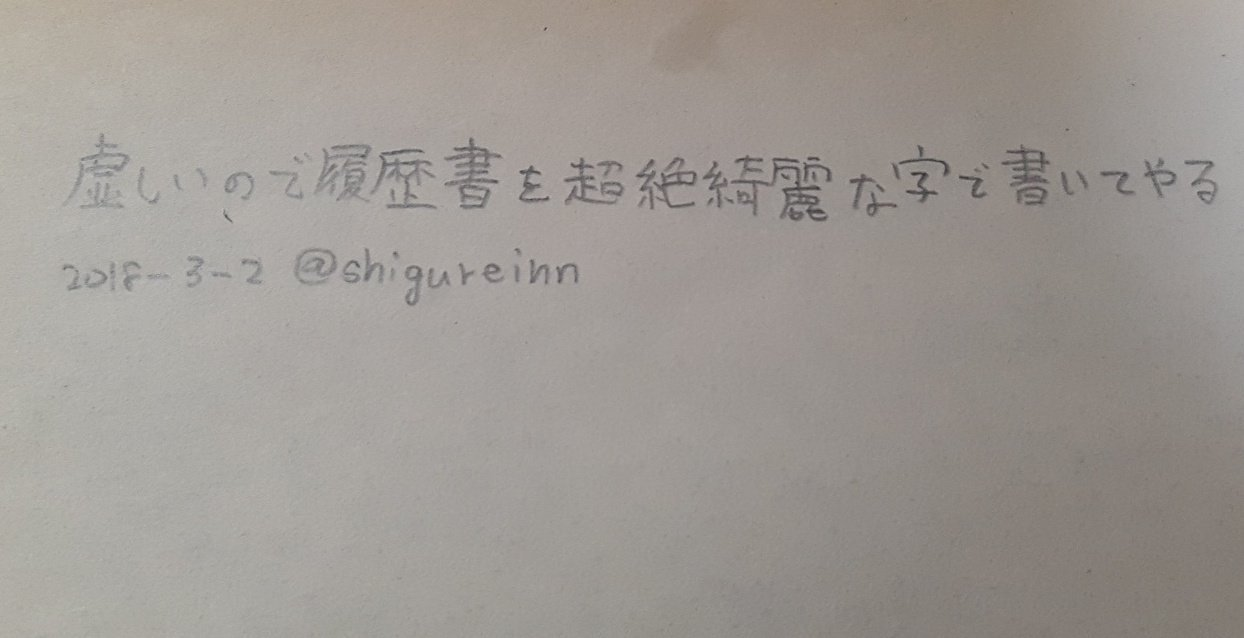 虚しいので履歴書を超絶綺麗な字で書いてやる
2018-3-2 @shigureinn